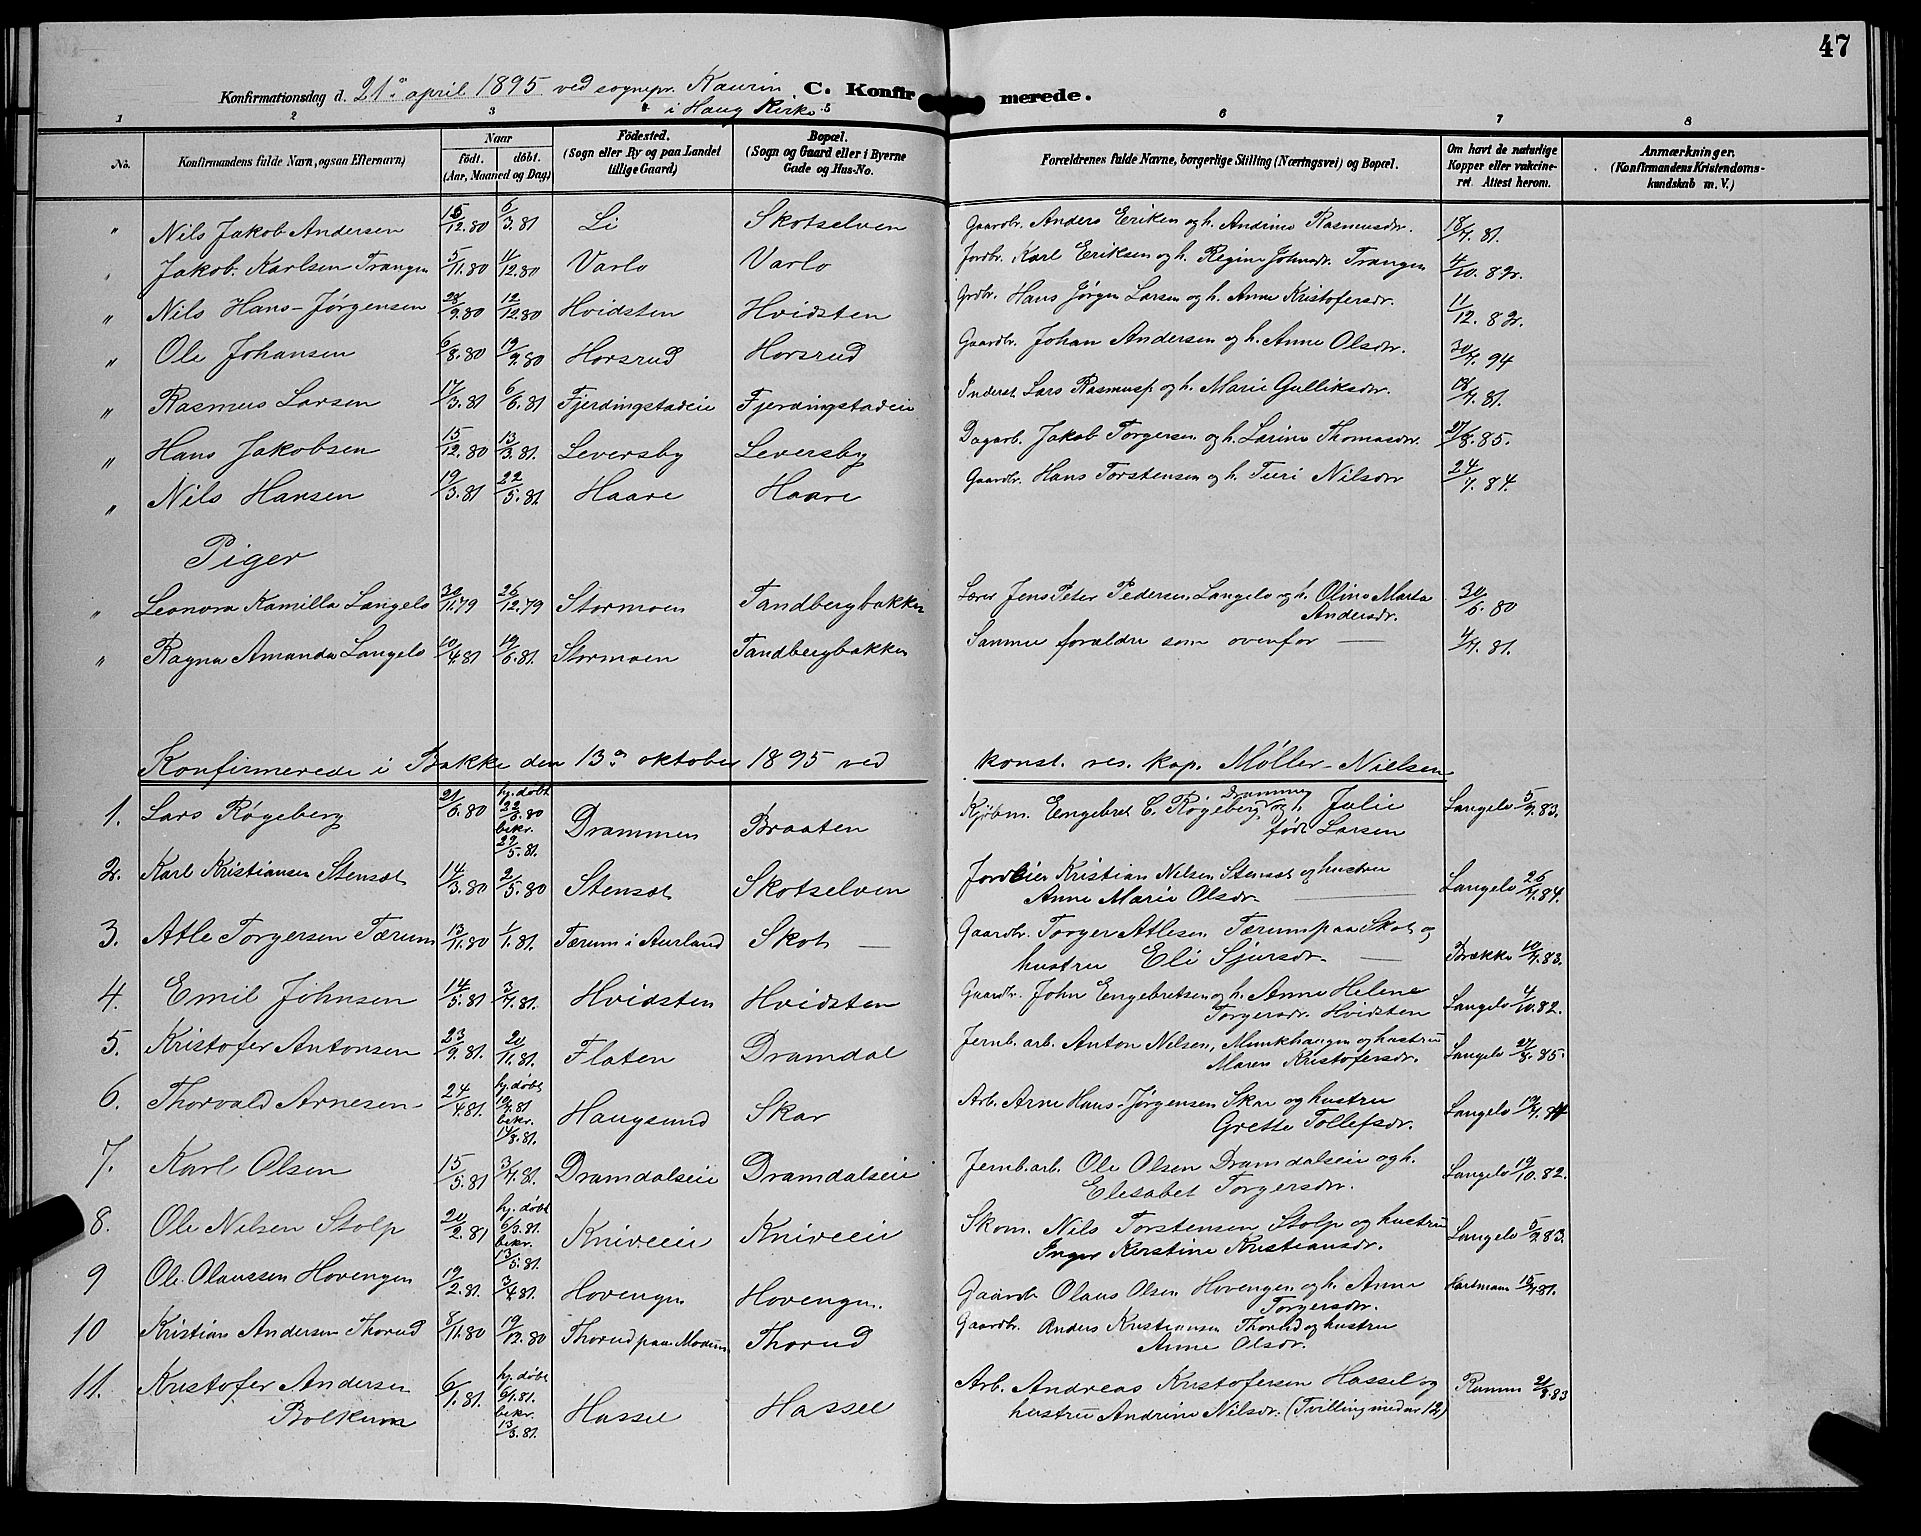 47
Konfirmationsdag d. 21de april 1895 ved sognepr. Kaurin C. Konfirmerede.
i Haug Kirke
1 2 3 4 5 6 7 8
No. Konfirmandens fulde Navn, ogsaa Efternavn) Naar födt. döbt. (Aar, Maaned og Dag) Födested. (Sogn eller By og paa Landet tillige Gaard) Bopæl. (Sogn og Gaard eller i Byerne Gade og Hus-No. Forældrenes fulde Navne, borgerlige Stilling (Næringsvei) og Bopæl. Om havt de naturlige Kopper eller vakcineret. Attest herom. Anmærkninger. (Konfirmandens Kristendomskundskab m. V.)
" Nils Jakob Andersen 15/12.80 6/3.81 Li Skotselven Gaardbr. Anders Eriksen og h. Andrine Rasmusdr. 18/7.81.
" Jakob Karlsen Trangen 5/11.80 4/12.80 Varlo Varlo Jordbr. Karl Eriksen og h. Regine Johnsdr. Trangen 4/10.82.
" Nils Hans-Jørgensen 28/9.80 12/12.80 Hvidsten Hvidsten Grdbr. Hans Jørgen Larsen og h. Anne Kristofersdr. 11/12.82.
" Ole Johansen 6/8.80 19/9.80 Horsrud Horsrud Gaardbr. Johan Andersen og h. Anne Olsdr. 30/7.94
" Rasmus Larsen 17/3.81 6/6.81 Fjerdingstadeie Fjerdingstadeie Inderst Lars Rasmuss. og h. Marie Gulliksdr. 18/7.81.
" Hans Jakobsen 15/12.80 13/3.81. Leversby Leversby Dagarb. Jakob Torgersen og h. Larine Thomasdr. 27/8.85.
" Nils Hansen 19/3.81 22/5.81 Haare Haare Gaardbr. Hans Torstensen og h. Turi Nilsdr 24/7.84.
Piger
" Leonora Kamilla Langelo 30/11.79 26/12.79 Stormoen Tandbergbakken Lærer Jens Peter Pedersen Langelo og h. Oline Marta Andersdr. 30/6.80
" Ragna Amanda Langelo 10/4.81 19/6.81. Stormoen Tandbergbakken Samme forældre som ovenfor — 4/7.81.
Konfirmerede i Bakke den 13de oktober 1895 ved konst. res. kap. Møller-Nielsen
1. Lars Røgeberg 21/6.80 hj. døbt 22/6.80 bekr. 29/5.81. Drammen Braaten Kjøbm. Engebret C. Røgeberg Drammen og h. Julie født Larsen Langelo 5/9.83.
2. Karl Kristiansen Stensæt 14/3.80 2/5.80 Stensæt Skotselven Jordeier Kristian Nilsen Stensæt og hustru Anne Marie Olsdr. — Langelo 26/7.84.
3. Atle Torgersen Tærum 13/11.80 1/1.81. Tærum i Aurland Skot — Gaardbr. Torger Atlesen Tærum paa Skot og hustru Eli Sjursdr. — Brække 10/7.83.
4. Emil Johnsen 14/5.81 3/7.81. Hvidsten Hvidsten Gaardbr. John Engebretsen og h. Anne Helene Torgersdr. Hvidsten Langelo 4/10.82.
5. Kristofer Antonsen 23/9.81. 20/11.81. Flaten Dramdal Jernb. arb. Anton Nilsen, Munkhaugen og hustru Maren Kristofersdr. Langelo 27/8.85.
6. Thorvald Arnesen 24/4.81. hj. døbt 19/7.81 bekr. 14/8.81. Haugsund Skar Arb. Arne Hans-Jørgensen Skar og hustru Grette Tollefsdr. Langelo 19/7.84
7. Karl Olsen 15/5.81 3/7.81. Dramdalseie Dramdalseie Jernb. arb. Ole Olsen Dramdalseie og h. Elesabet Torgersdr. Langelo 19/10.82.
8. Ole Nilsen Stolp 20/2.81 hj. døbt 6/3.81. bekr. 13/5.81. Kniveeie Kniveeie Skom. Nils Torstensen Stolp og hustru Inger Kirstine Kristiansdr. Langelo 5/9.83.
9 Ole Olaussen Hovengen 19/2.81. 3/4.81. Hovengen Hovengen. Gaardbr. Olaus Olsen Hovengen og h. Anne Torgersdr. Hartmann 15/7.81.
10 Kristian Andersen Thorud 8/11.80 19/12.80 Thorud paa Modum Thorud Gaardbr. Anders Kristiansen Thorud og hustru Anne Olsdr.
11. Kristofer Andersen Bolkum 6/1.81. hj. døbt 6/1.81. bekr. 13/3.81. Hassel Hassel Arb. Andreas Kristofersen Hassel og hustru Andrine Nilsdr. (Tvilling med nr 12) Ramm 21/8.83